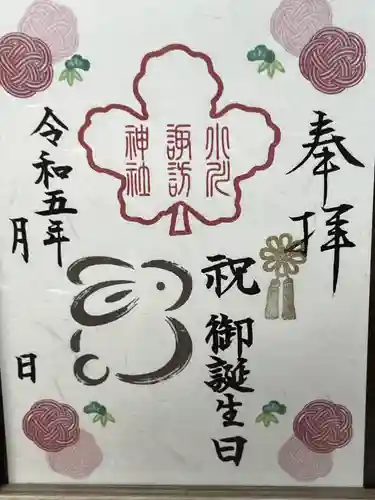 奉拝
祝 御誕生日
小川
諏訪
神社
令和五年
月
日